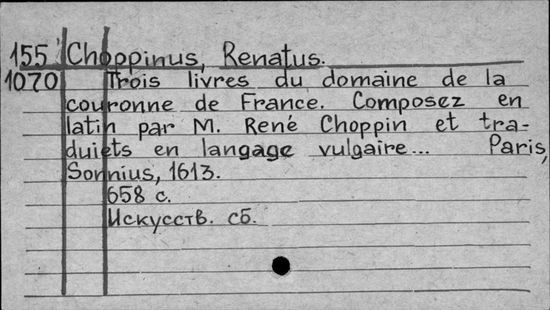 155 Choppinus, Renatus.
1070 Trois livres du domaine de la
couronne de France. Composez en
latin par M. René Choppin et tra-
duiets en langage vulgaire... Paris,
Sonnius, 1613.
658 с.
Искусств. сб.